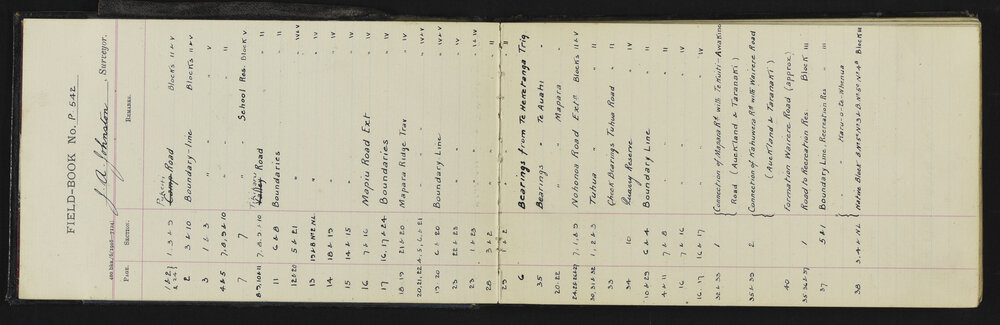 FIELD-BOOK No. P. 542
J. A. Johnston, Surveyor.
PAGE. SECTION. REMARKS.
1 & 2 1. 3 & 9 Road Blocks II & V
2 3 & 10 Boundary-line Blocks II & V
3 1 & 3 " " V
4 & 5 7. 8. 9 & 10 "
7 7 School Res. Block V
8. 9. 10 & 11 7. 8. 9 & 10 Road II
11 6 & 8 Boundaries II
12 & 20 5 & 21 IV & V
13 19 & B No 2 NL IV
14 18 & 19 IV
15 14 & 15 IV
16 7 & 16 Mapiu Road Ext IV
17 16, 17 & 24 Boundaries IV
18 19 21 & 20 Mapara Ridge Trav IV
20, 21, 22 4. 5, 6. & 21 " " " IV & V
19 20 6 & 21 Boundary Line IV & V
23 22 & 23 " " II
23 1 & 23 " " I & IV
28 3 & 2 " " II
29 1 & 2 " " "
6 Bearings from Te Heretanga Trig
35 Bearings " Te Auahi "
20-22 " " Mapara "
24. 25 & 26 & 27 7, 1, 8 & 9 Nohonoa Road Extn Blocks II & V
30, 31 & 32 1, 2 & 3 Tuhua " " II
33 Check Bearings Tuhua Road II
34 10 Quarry Reserve IV
10 & 29 6 & 4 Boundary Line II
4 & 11 7 & 8 " " II
16 7 & 16 " " IV
16. 17 16 & 17 " " IV
32 & 33 1 Connection of Mapara Rd with Te Kuiti-Awakino
Road (Auckland & Taranaki)
35 & 39 2 Connection of Kahuwera Rd with Wairere Road
(Auckland & Taranaki)
40 Formation Wairere Road (approx.)
35 36 & 37 1 Road to Recreation Res Block III
37 5 & 1 Boundary Line. Recreation Res " III
" " Haru-o-te-Whenua
38 3. 4 & NL Native Block